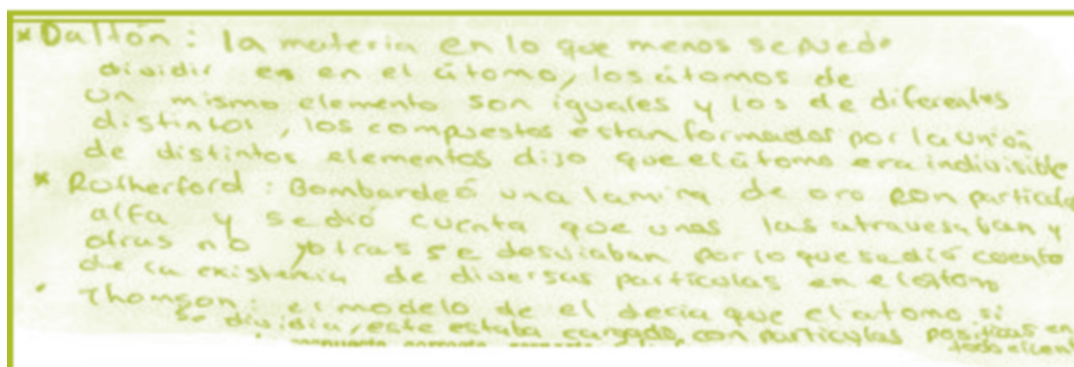 * Dalton: la materia en lo que menos se puede
dividir es en el átomo, los átomos de
un mismo elemento son iguales y los de diferentes
distintos, los compuestos estan formados por la unión
de distintos elementos dijo que el átomo era indivisible
* Rutherford: Bombardeó una lamina de oro con particulas
alfa y se dió cuenta que unas las atravesaban y
otras no y otras se desviaban por lo que se dió cuenta
de la existencia de diversas partículas en el átomo
· Thomson: el modelo de el decia que el atomo si
se dividia, este estaba cargado con particulas positivas en
todo el